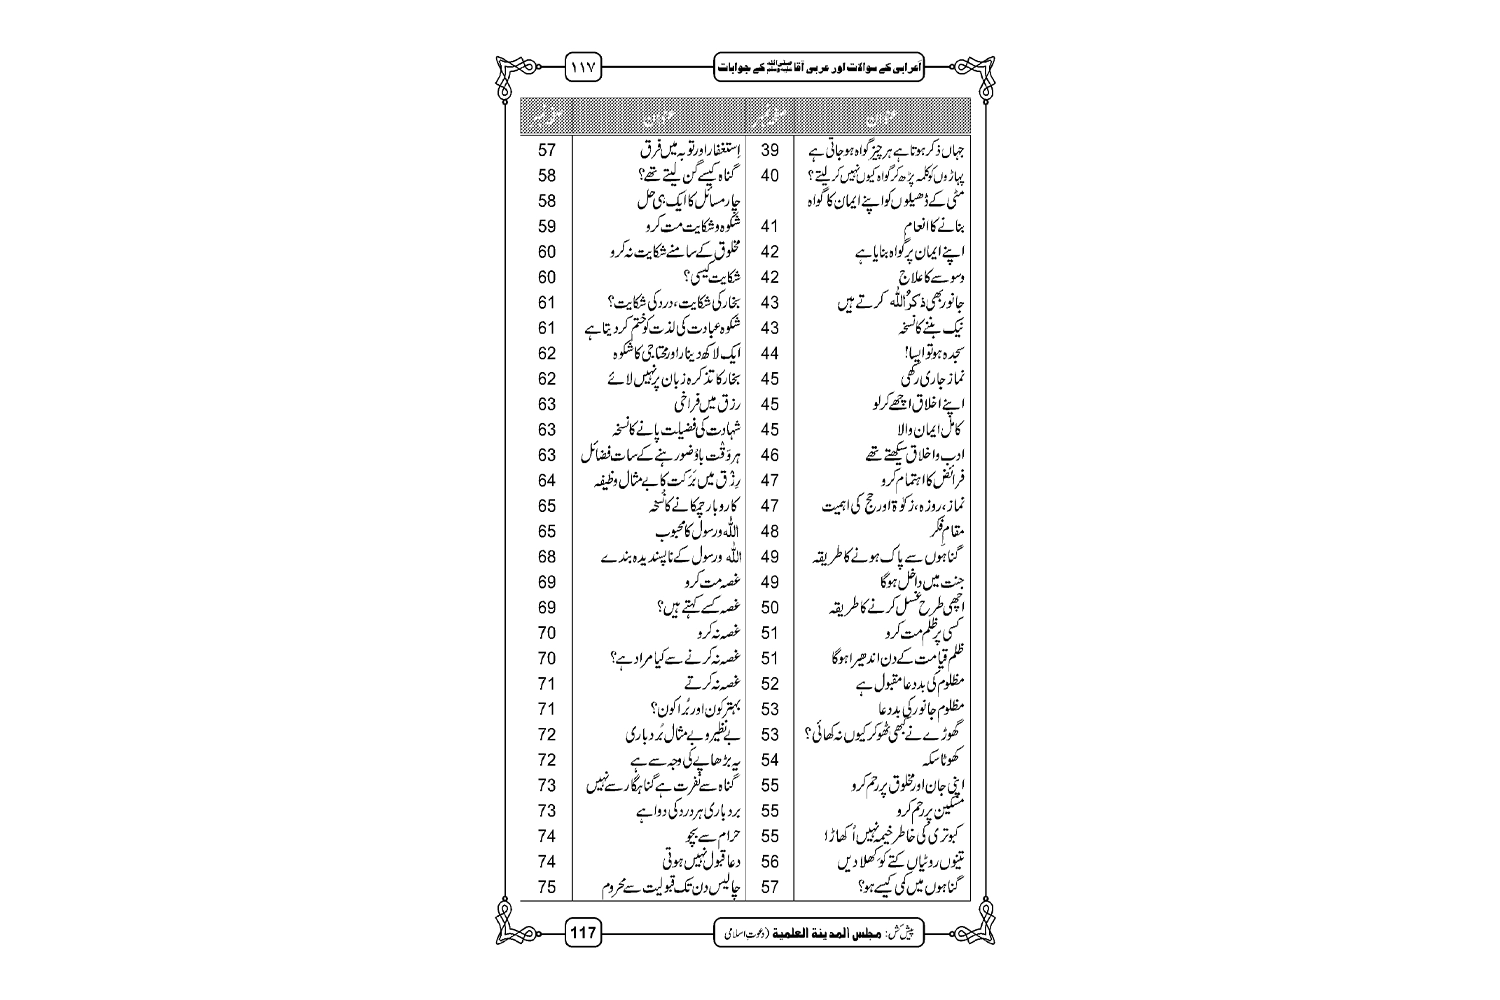 اَعرابی کے سوالات اور عربی آقا ﷺ کے جوابات
۱۱۷
عنوان صفحہ نمبر
جہاں ذکر ہوتا ہے ہر چیز گواہ ہو جاتی ہے 39
پہاڑوں کو کلمہ پڑھ کر گواہ کیوں نہیں کر لیتے؟ 40
مٹی کے ڈھیلوں کو اپنے ایمان کا گواہ
بنانے کا انعام 41
اپنے ایمان پر گواہ بنایا ہے 42
وسوسے کا علاج 42
جانور بھی ذکرُ اللّٰہ کرتے ہیں 43
نیک بننے کا نسخہ 43
سجدہ ہو تو ایسا! 44
نماز جاری رکھی 45
اپنے اخلاق اچھے کر لو 45
کامل ایمان والا 45
ادب و اخلاق سیکھتے تھے 46
فرائض کا اہتمام کرو 47
نماز، روزہ، زکوٰۃ اور حج کی اہمیت 47
مقامِ فکر 48
گناہوں سے پاک ہونے کا طریقہ 49
جنت میں داخل ہوگا 49
اچھی طرح غسل کرنے کا طریقہ 50
کسی پر ظلم مت کرو 51
ظلم قیامت کے دن اندھیرا ہوگا 51
مظلوم کی بددعا مقبول ہے 52
مظلوم جانور کی بددعا 53
گھوڑے نے کبھی ٹھوکر کیوں نہ کھائی؟ 53
کھوٹا سکہ 54
اپنی جان اور مخلوق پر رحم کرو 55
مسکین پر رحم کرو 55
کبوتری کی خاطر خیمہ نہیں اُکھاڑا 55
تینوں روٹیاں کتے کو کھلا دیں 56
گناہوں میں کمی کیسے ہو؟ 57
عنوان صفحہ نمبر
اِستغفار اور توبہ میں فرق 57
گناہ کیسے گن لیتے تھے؟ 58
چار مسائل کا ایک ہی حل 58
شکوہ و شکایت مت کرو 59
مخلوق کے سامنے شکایت نہ کرو 60
شکایت کیسی؟ 60
بخار کی شکایت، درد کی شکایت؟ 61
شکوہ عبادت کی لذت کو ختم کر دیتا ہے 61
ایک لاکھ دینار اور محتاجی کا شکوہ 62
بخار کا تذکرہ زبان پر نہیں لائے 62
رزق میں فراخی 63
شہادت کی فضیلت پانے کا نسخہ 63
ہر وَقْت باوُضو رہنے کے سات فضائل 63
رِزْق میں بَرَکت کا بے مثال وظیفہ 64
کاروبار چمکانے کا نُسخہ 65
اللّٰہ و رسول کا محبوب 65
اللّٰہ و رسول کے ناپسندیدہ بندے 68
غصہ مت کرو 69
غصہ کسے کہتے ہیں؟ 69
غصہ نہ کرو 70
غصہ نہ کرنے سے کیا مراد ہے؟ 70
غصہ نہ کرتے 71
بہتر کون اور بُرا کون؟ 71
بے نظیر و بے مثال بُردباری 72
یہ بڑھاپے کی وجہ سے ہے 72
گناہ سے نفرت ہے گناہگار سے نہیں 73
بردباری ہر درد کی دوا ہے 73
حرام سے بچو 74
دعا قبول نہیں ہوتی 74
چالیس دن تک قبولیت سے محروم 75
پیش کش: مجلس المدينة العلمية (دعوتِ اسلامی)
117